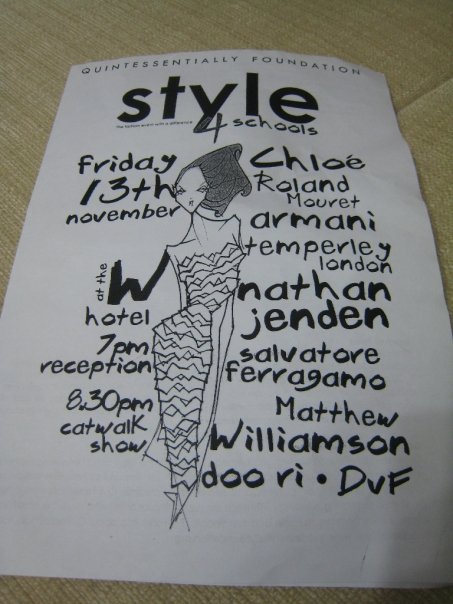 QUINTESSENTIALLY FOUNDATION
style
The fashion event with a difference
4 schools
friday
13th
november
at the
W
hotel
7pm
reception
8.30pm
catwalk
show
Chloé
Roland
Mouret
armani
temperley
london
nathan
jenden
salvatore
ferragamo
Matthew
Williamson
doo ri • DvF